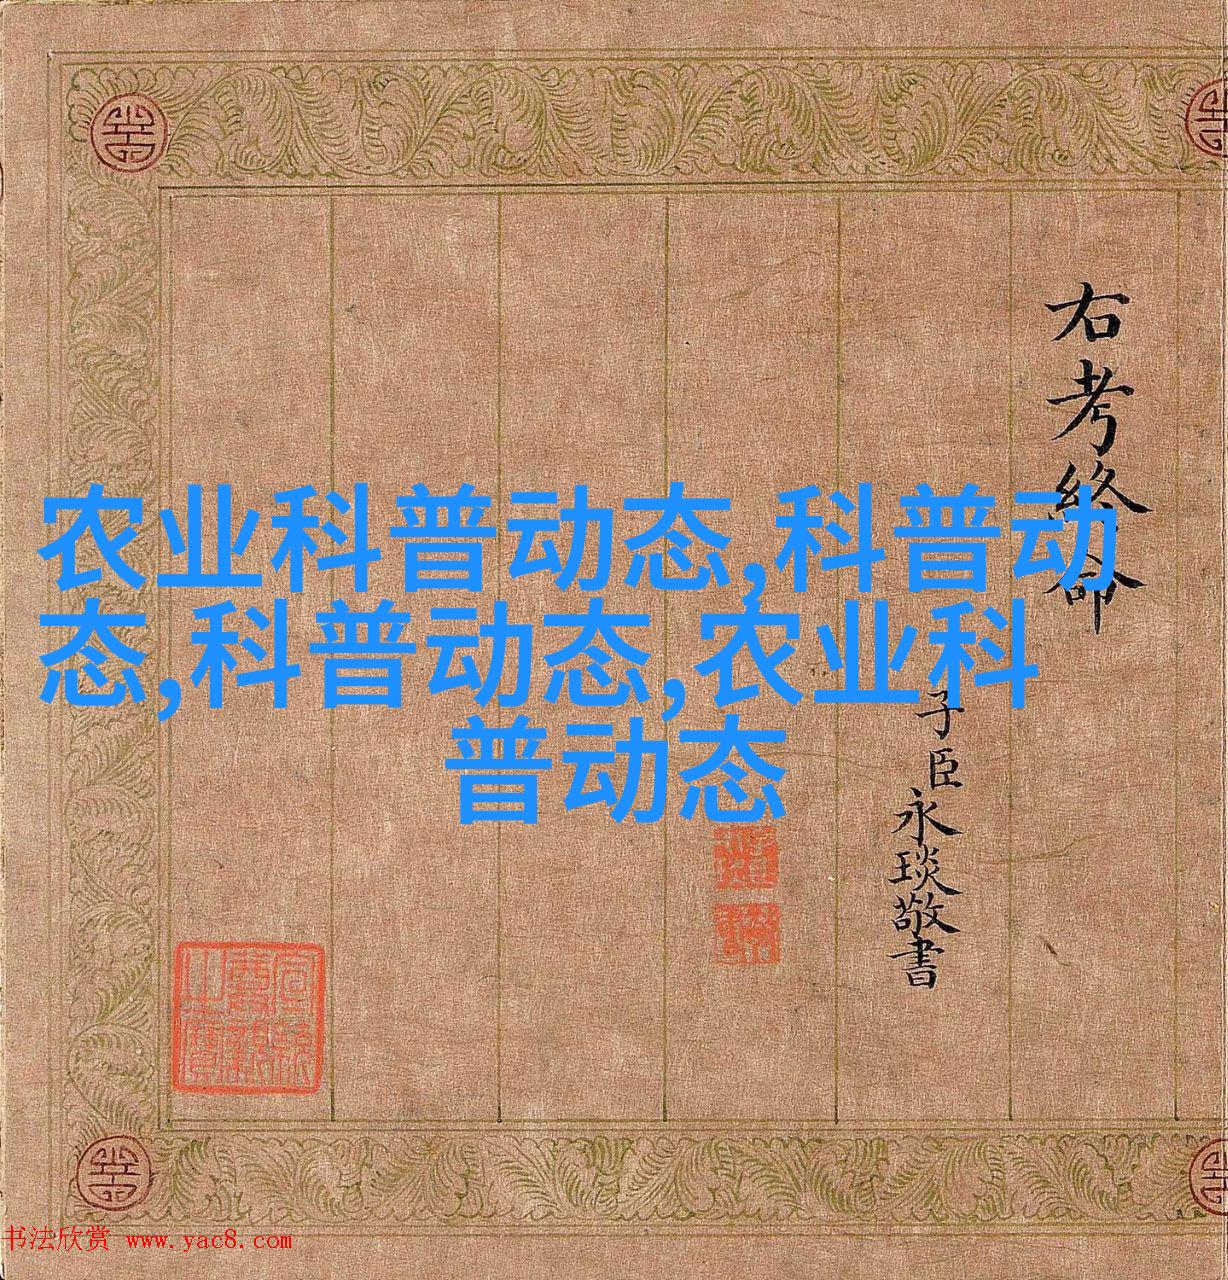 农业科普动态,科普动
态,科普动态,农业科
普动态
右考终命
子臣永琰敬書
书法欣赏 www.yac8.com